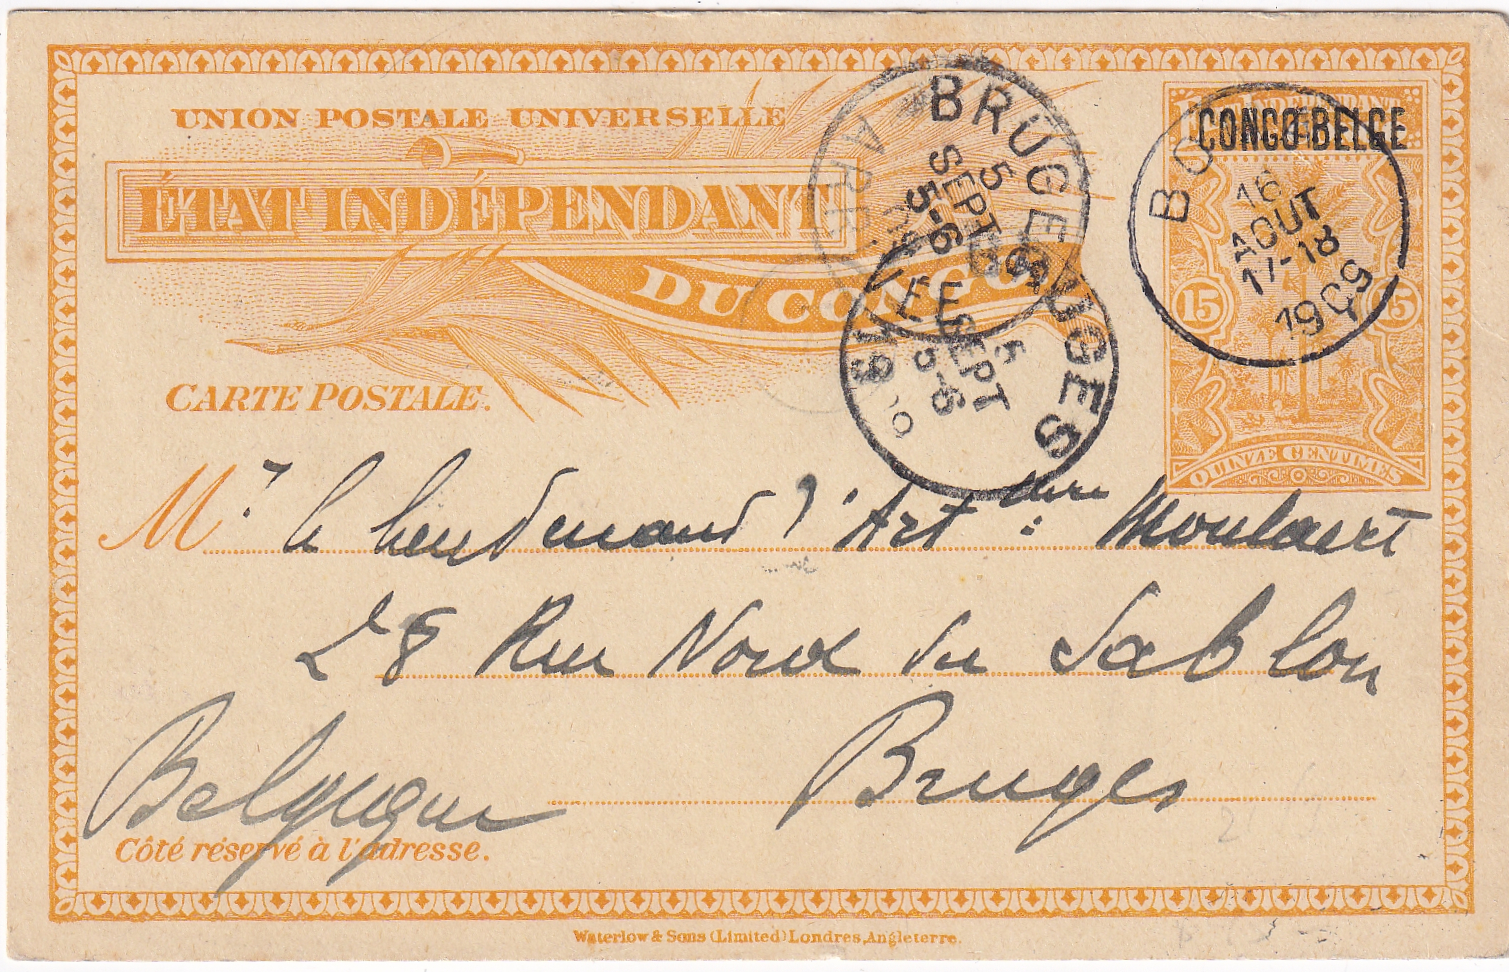 UNION POSTALE UNIVERSELLE
ÉTAT INDÉPENDANT
DU CONGO
CARTE POSTALE.
CONGO BELGE
15 15
QUINZE CENTIMES
BO
16
AOUT
17-18
1909
BRUGES
5
SEPT
5-6
ARRIVÉE
BRUGES
5
SEPT
5-6
Mr. le lieutenant d'Art :
Moulaert
28 Rue Nord du Sablon
Bruges
Belgique
Côté réservé à l'adresse.
Waterlow & Sons (Limited) Londres, Angleterre.